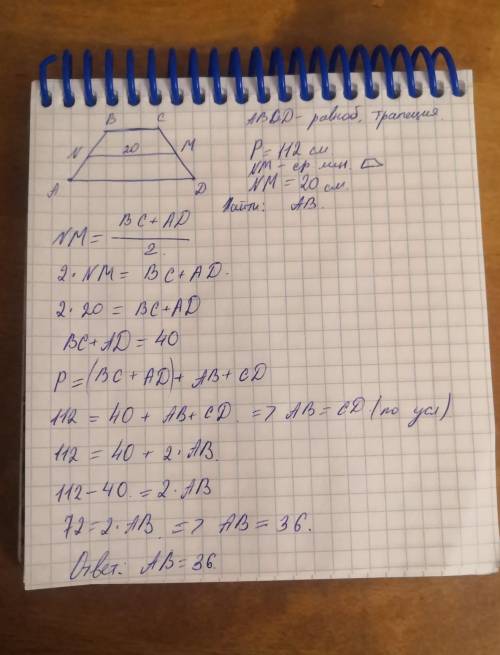 B C
ABCD - равноб. трапеция
N 20 M
P = 112 см
NM - ср. лин.
A D
NM = 20 см.
Найти: AB.
NM = BC + AD / 2
2 · NM = BC + AD.
2 · 20 = BC + AD
BC + AD = 40
P = (BC + AD) + AB + CD
112 = 40 + AB + CD. => AB = CD (по усл)
112 = 40 + 2 · AB.
112 - 40 = 2 · AB
72 = 2 · AB. => AB = 36.
Ответ: AB = 36.